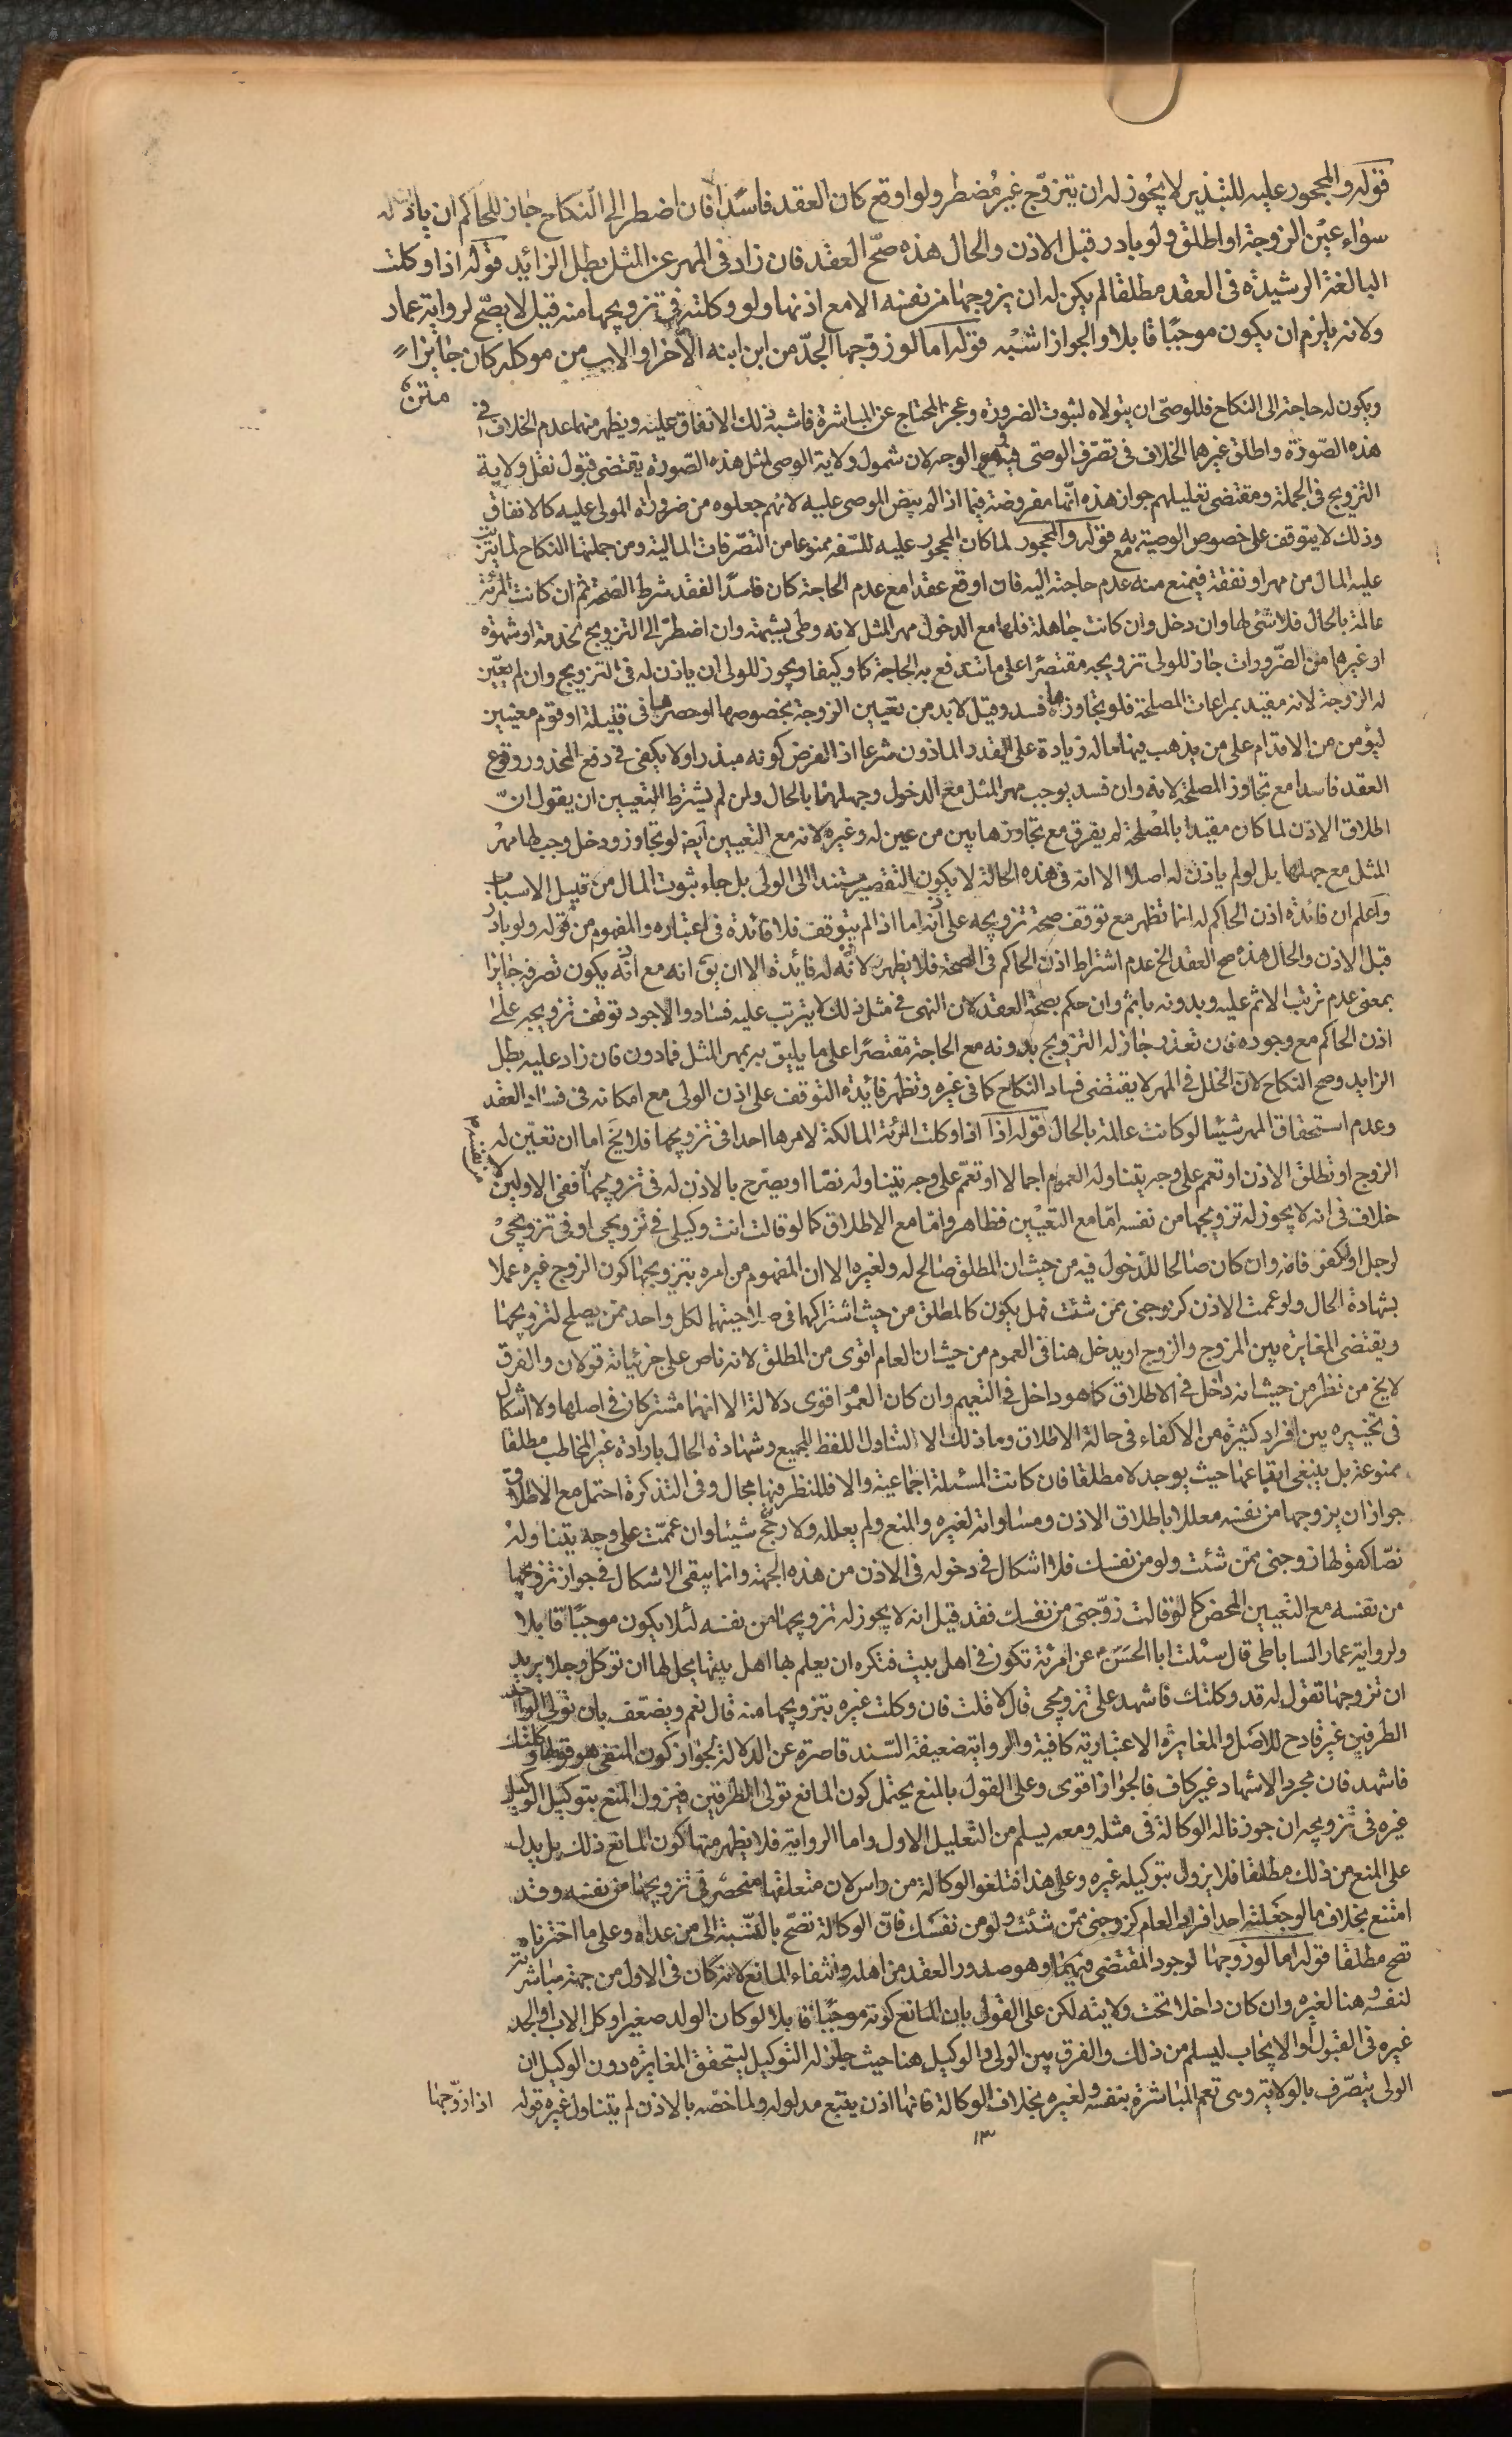 قوله والمحجور عليه للتبذير لا يجوز له ان يتزوّج غير مُضطر ولو اوقع كان العقد فاسدًا فان اضطر الى النكاح جاز للحاكم ان ياذن له
سواء عيّن الزوجة او اطلق ولو بادر قبل الاذن والحال هذه صحّ العقد فان زاد فى المهر عن المثل بطل الزائد قوله اذا وكلت
البالغة الرشيدة فى العقد مطلقا لم يكن له ان يزوجها من نفسه الا مع اذنها ولو وكلته فى تزويجها منه قيل لا يصّح لرواية عمار
ولانه يلزم ان يكون موجبًا قابلا والجواز اشبه قوله اما لو زوّجها الجدّ من ابن ابنه الآخر او الاب من موكله كان جايزا
متن
ويكون له حاجة الى النكاح فللوصّى ان يتولاه لثبوت الضرورة وعجز المحتاج عن المباشرة فاشبه ذلك الانفاق عليه ويظهر منهما عدم الخلاف فى
هذه الصّورة واطلق غيرهما الخلاف فى تصرّف الوصّى فيه الوجه لان شمول ولاية الوصى لمثل هذه الصّورة يقتضى قبول نقل ولاية
التزويج فى الجملة ومقتضى تعليلهم جواز هذه انّها مفروضة فيما اذا لم ينص الموصى عليه لانهم جعلوه من ضرورة المولى عليه كالانفاق
وذلك لا يتوقف على خصوص الوصية به قوله والمحجور لما كان المحجور عليه للسّفه ممنوعا من التصّرفات المالية ومن جملتها النكاح لما يترتب
عليه المال من مهر او نفقة فيمنع منه مع عدم حاجته اليه فان اوقع عقدا مع عدم الحاجة كان فاسدًا لفقد شرط الصّحة ثم ان كانت المرئة
عالمة بالحال فلا شئ لها وان دخل وان كانت جاهلة فلها مع الدخول مهر المثل لانه وطى بشبهة وان اضطرّ الى التزويج لخدمة او شهوة
او غيرها من الضّرورات جاز للولى تزويجه مقتصرًا على ما تندفع به الحاجة كما وكيفا ويجوز للولى ان ياذن له فى التزويج وان لم يعيّن
له الزوجة لانه مقيد بمراعات المصلحة فلو تجاوزها فسد وقيل لا بد من تعيين الزوجة بخصوصها او حصرها فى قبيلة او قوم معينين
ليؤمن من الاقدام على من يذهب فيها ماله زيادة على القدر الماذون شرعا اذ الفرض كونه مبذرا ولا يكفى فى دفع المحذور وقوع
العقد فاسدا مع تجاوز المصلحة لانه وان فسد يوجب مهر المثل مع الدخول وجهلها بالحال ولمن لم يشترط التعيين ان يقول انّ
اطلاق الاذن لما كان مقيدا بالمصلحة لم يفرق مع تجاوزها بين من عين له وغيره لانه مع التعيين ايضا لو تجاوز ودخل وجب لها مهر
المثل مع جهلها بل لو لم ياذن له اصلا الا انه فى هذه الحالة لا يكون التقصير مستندا الى الولى بل جاء ثبوت المال من قبيل الاسباب
واعلم ان فائدة اذن الحاكم له انما تظهر مع توقف صحة تزويجه على اذنه اما اذا لم يتوقف فلا فائدة فى اعتباره والمفهوم من قوله ولو بادر
قبل الاذن والحال هذه صح العقد الخ عدم اشتراط اذن الحاكم فى الصحة فلا يظهر لاذنه له فائدة الا ان يق انه مع اذنه يكون تصرفه جايزا
بمعنى عدم ترتب الاثم عليه وبدونه ياثم وان حكم بصحة العقد لان النهى فى مثل ذلك لا يترتب عليه فساد والاجود توقف تزويجه على
اذن الحاكم مع وجوده فان تعذر جاز له التزويج بدونه مع الحاجة مقتصرًا على ما يليق به بمهر المثل فمادون فان زاد عليه بطل
الزايد وصح النكاح لان الخلل فى المهر لا يقتضى فساد النكاح كما فى غيره وتظهر فائدة التوقف على اذن الولى مع امكانه فى فساد العقد
وعدم استحقاق المهر شيئا لو كانت عالمة بالحال قوله اذا اذا وكلت المرئة المالكة لامرها احدا فى تزويجها فلا يخ اما ان تعيّن له
الزوج او تطلق الاذن او تعمم على وجه يتناوله العموم اجمالا او تعمّم على وجه يتناوله نصّا او يصّرح بالاذن له فى تزويجها ففى الاولين لا
خلاف فى انه لا يجوز له تزويجها من نفسه امّا مع التعيين فظاهر وامّا مع الاطلاق كما لو قالت انت وكيلى فى تزويجى او فى تزويجى
لرجل او كفو فانه وان كان صالحا للدخول فيه من حيث ان المطلق صالح له ولغيره الا ان المفهوم من امره بتزويجها كون الزوج غيره عملا
بشهادة الحال ولو عممت الاذن كزوجنى ممن شئت فهل يكون كالمطلق من حيث اشتراكهما فى صلاحيتهما لكل واحد ممن يصلح لتزويجها
ويقتضى المغايرة بين المزوج والزوج او يدخل هنا فى العموم من حيث ان العام اقوى من المطلق لانه ناص على جزئياته قولان والفرق
لا يخ من نظر من حيث انه داخل فى الاطلاق كما هو داخل فى التعميم وان كان العموم اقوى دلالة الا انهما مشتركان فى اصلها ولا اشكال
فى تخييره بين افراد كثيرة من الاكفاء فى حالة الاطلاق وما ذلك الا لتناول اللفظ للجميع وشهادة الحال بارادة غير المخاطب مطلقا
ممنوعة بل ينبغى اتباعها حيث يوجد لا مطلقا فان كانت المسئلة اجماعية والا فللنظر فيها مجال وفى التذكرة احتمل مع الاطلاق
جواز ان يزوجها من نفسه معللا باطلاق الاذن ومساواته لغيره والمنع ولم يعلله ولا رجّح شيئا وان عممّت على وجه يتناوله
نصّا كقولها زوجنى ممّن شئت ولو من نفسك فلا اشكال فى دخوله فى الاذن من هذه الجهة وانما يبقى الاشكال فى جواز تزويجها
من نفسه مع التعيين المحض كما لو قالت زوّجنى من نفسك فقد قيل انه لا يجوز له تزويجها من نفسه لئلا يكون موجبًا قابلا
ولرواية عمار الساباطى قال سئلت ابا الحسَن عن امرئة تكون فى اهل بيت فتكره ان يعلم بها اهل بيتها يحل لها ان توكل رجلا يريد
ان تزوجها تقول له قد وكلتك فاشهد على تزويجى قال لا قلت فان وكلت غيره بتزويجها منه قال نعم ويضعّف بان تولى الواحد
الطرفين غير قادح للاصل والمغايرة الاعتبارية كافية والرواية ضعيفة السّند قاصرة عن الدلالة لجواز كون المنفى هو قولها وكلتك
فاشهد فان مجرد الاشهاد غير كاف فالجواز اقوى وعلى القول بالمنع يحتمل كون المانع تولى الطرفين فيزول المنع بتوكيل الوكيل
غيره فى تزويجه ان جوزنا له الوكالة فى مثله ومعه يسلم من التعليل الاول واما الرواية فلا يظهر منها كون المانع ذلك بل يدل
على المنع من ذلك مطلقا فلا يزول بتوكيله غيره وعلى هذا فتلغو الوكالة من راس لان متعلقها منحصر فى تزويجها من نفسه وقد
امتنع بخلاف ما لو جعلته احد افراد العام كزوجنى ممّن شئت ولو من نفسك فانّ الوكالة تصّح بالنّسبة الى من عداه وعلى ما اخترناه
تصح مطلقا قوله اما لو زوجها لوجود المقتضى فيهما وهو صدور العقد من اهله وانتفاء المانع لانه كان فى الاول من جهة مباشرته
لنفسه وهنا لغيره وان كان داخلا تحت ولايته لكن على القول بان المانع كونه موجبًا قابلا لو كان الولد صغيرا وكل الاب او الجد
غيره فى القبول او الايجاب ليسلم من ذلك والفرق بين الولى والوكيل هنا حيث جاز له التوكيل ليتحقق المغايرة دون الوكيل ان
الولى يتصّرف بالولاية وهى تعم المباشرة بنفسه ولغيره بخلاف الوكالة فانها اذن يتبع مدلوله ولما خصّه بالاذن لم يتناول غيره قوله
اذا زوّجها
١٣